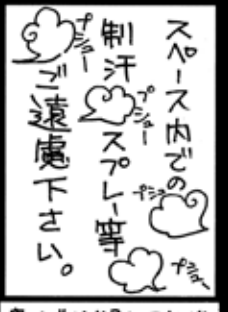 スペース内での
制汗スプレー等
ご遠慮下さい。
プシュー
プシュー
プシュ
プシュー